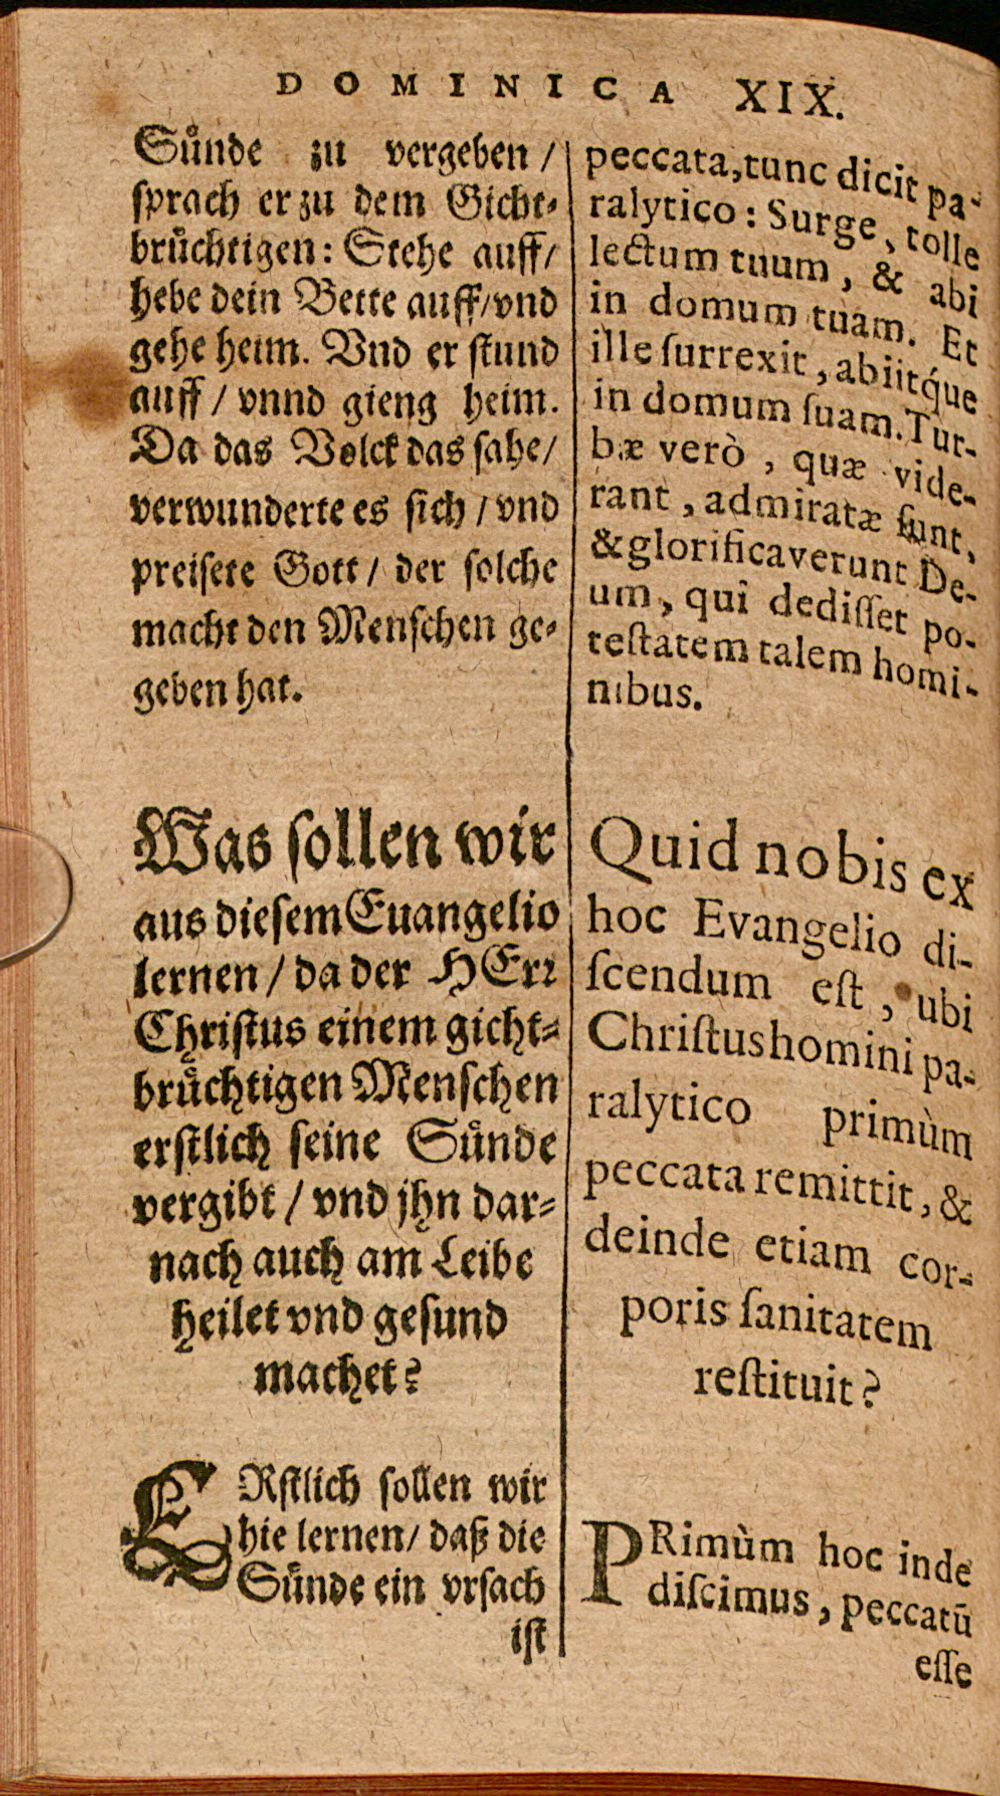 DOMINICA XIX.
Suͤnde zu vergeben /
sprach er zu dem Gicht⸗
bruͤchtigen: Stehe auff/
hebe dein Bette auff/vnd
gehe heim. Vnd er stund
auff / vnnd gieng heim.
Da das Volck das sahe/
verwunderte es sich / vnd
preisete Gott / der solche
macht den Menschen ge⸗
geben hat.
Was sollen wir
aus diesem Euangelio
lernen / da der HErꝛ
Christus einem gicht⸗
bruͤchtigen Menschen
erstlich seine Suͤnde
vergibt / vnd jhn dar⸗
nach auch am Leibe
heilet vnd gesund
machet?
ERstlich sollen wir
hie lernen/ daß die
Suͤnde ein vrsach
ist
peccata, tunc dicit pa-
ralytico: Surge, tolle
lectum tuum, & abi
in domum tuam. Et
ille ſurrexit, abiitq́ue
in domum ſuam. Tur-
bæ verò, quæ vide-
rant, admiratæ ſunt,
& glorificaverunt De-
um, qui dediſſet po-
teſtatem talem homi-
nibus.
Quid nobis ex
hoc Evangelio di-
ſcendum eſt, ubi
Chriſtus homini pa-
ralytico primùm
peccata remittit, &
deinde etiam cor-
poris ſanitatem
reſtituit?
PRimùm hoc inde
diſcimus, peccatū
eſſe